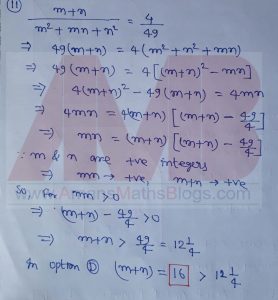 (11) m+n / m²+mn+n² = 4/49
⇒ 49(m+n) = 4(m²+n²+mn)
⇒ 49(m+n) = 4[(m+n)²-mn]
⇒ 4(m+n)²-49(m+n) = 4mn
⇒ 4mn = 4(m+n)[(m+n)-49/4]
⇒ mn = (m+n)[(m+n)-49/4]
∵ m & n are +ve integers
⇒ mn → +ve, m+n → +ve
So for mn>0
⇒ (m+n)-49/4>0
⇒ m+n > 49/4 = 12 1/4
In option (D) (m+n) = 16 > 12 1/4
AMB
www.AnsMathsBlogs.com